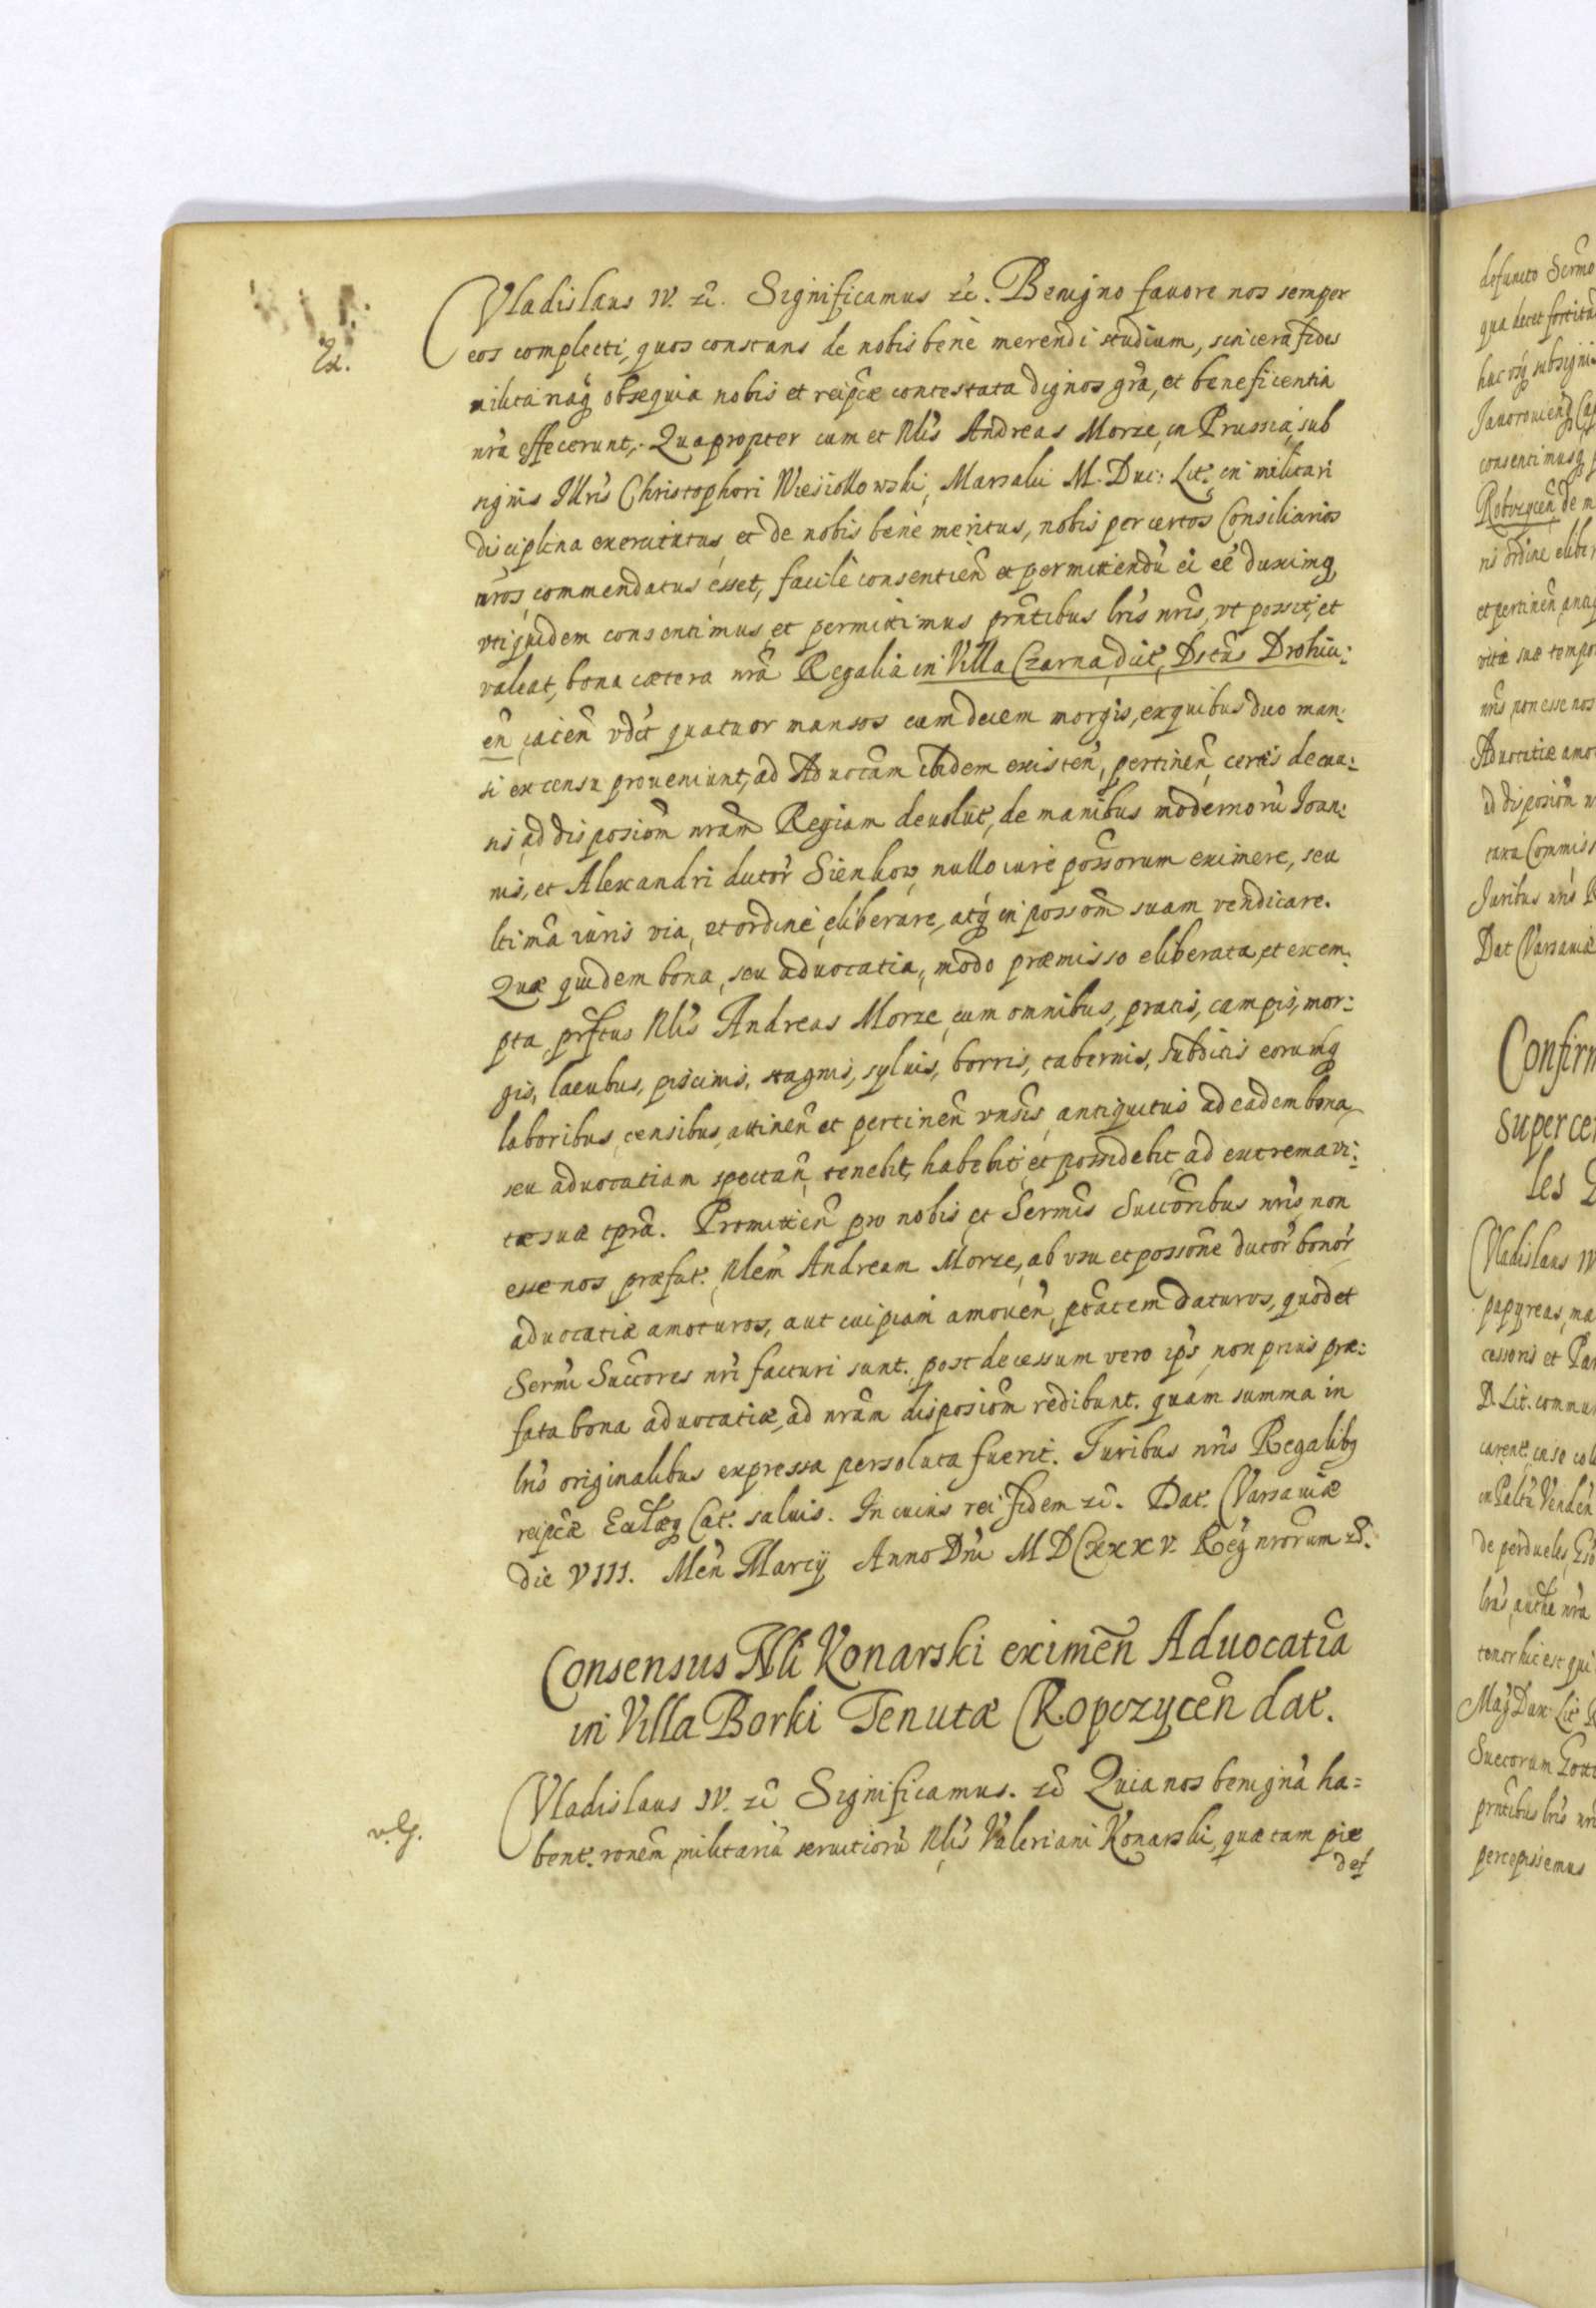 Vladislaus IV. etc. Significamus etc. Benigno fauore nos semper
Ex.
eos complecti, quos constans de nobis benè merendi studium, sincera fides
militariaq obsequia nobis et reipcæ contestata dignos gra, et beneficentia
nrà effecerunt, Quapropter cum et Nlis Andreas Morze, in Prussia, sub
signis Illris Christophori Wiesiollowski, Marsalci M. Duc: Lit. in militari
disciplina exercitatus, et de nobis bene meritus, nobis per certos Consiliarios
nros commendatus esset, facilè consentien et permittendu ei eé duximq,
vti quidem consentimus et permittimus prntibus lris nris, vt possit, et
valeat, bona cætera nra Regalia in Villa Czarna dict, Dstus Drohic:
en iacen vdct quatuor mansos cum decem morgis, ex quibus duo man:
si ex censu proueniunt, ad Aduocam ibidem existen, pertinen certis de cau:
sis ad disposiom nram Regiam deuolut, de manibus modernoru Ioan:
nis, et Alexandri dictor Sienkow, nullo iure possorum eximere, seu
ltima iuris via, et ordine eliberare, atq in possom suam vendicare.
Quæ quidem bona, seu aduocatia, modo præmisso eliberata, et exem:
pta, prftus Nlis Andreas Morze, cum omnibus, pratis, campis, mor:
gis, lacubus, piscinis, stagnis, syluis, borris, tabernis, subditis eorumq
laboribus, censibus, attinen et pertinen vnsis, antiquitus ad eadem bona,
seu aduocatiam spectan, tenebit, habebit et possidebit ad extrema vi:
tæ suæ tpra. Promitten pro nobis et Sermis Succoribus nris non
esse nos, præfat. Nlem Andream Morze, ab vsu et possone dictor bonor
aduocatiæ amoturos, aut cuipiam amouen, ptatem daturos, quod et
Sermi Succores nri facturi sunt. post decessum vero ips, non prius præ:
fata bona aduocatiæ, ad nram disposiom redibunt. quam summa in
lris originalibus expressa persoluta fuerit. Iuribus nris Regalibq
reipcæ Ecclæq Cat. saluis. In cuius rei fidem etc. Dat. Varsauiæ
die VIII. Men Marcij Anno Dni MDCXXXV. Reg nrorum etc.
Consensus Nli Konarski eximen Aduocatia
in Villa Borki Tenutæ Ropczycen dat.
Vladislaus IV. etc Significamus. etc Quia nos benigna ha=
bent. ronem militariu seruitioru Nlis Valeriani Konarski, quæ tam pie
def
defuncto Sermo
qua decet
hac osq subsignis
consentimusq
Robczycen de m
ni ordine eliber
et pertinen antiq
vitæ suæ tempo
nris non esse nos
Aduocatiæ amo
ad disposiom n
taxa Commiss
Iuribus nris R
Dat Varsauiæ
Confirm
super cer
les
Vladislaus IV
papyreas, ma
cessoris et Pa
D. Lit. commu
de perdueles
tenor hic est qui
Mag Dux Lit
Suecorum Gott
prntibus lris nri
percepissemus